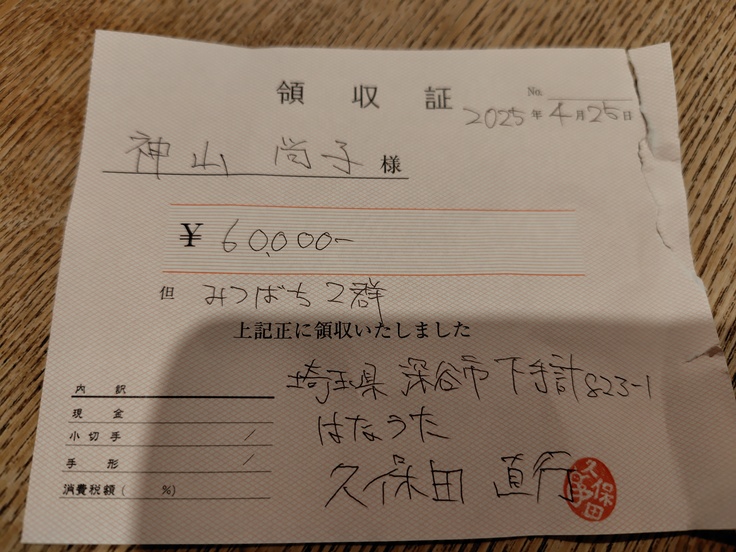 領収証
No.
2025年4月25日
神山 尚子 様
¥60,000-
但 みつばち2群
上記正に領収いたしました
埼玉県 深谷市 下手計823-1
はなうた
久保田 直行
内訳
現金
小切手 /
手形 /
消費税額( %)
久保田